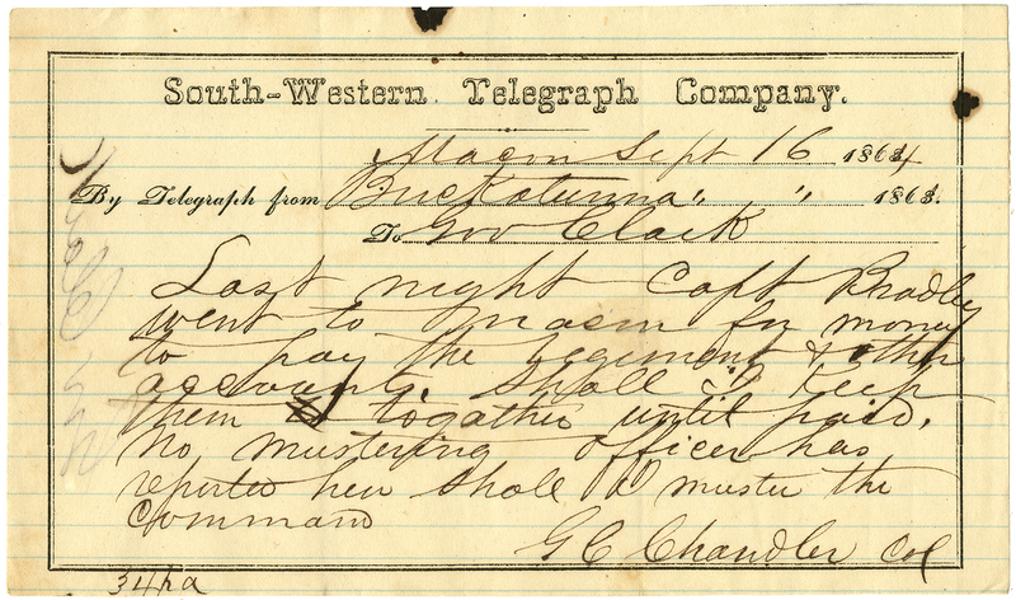 South-Western Telegraph Company.
Macon Sept 16 1864
By Telegraph from Buckatunna " " 1863.
To Gov Clark
Last night Capt Bradley
went to Macon for money
to pay the regiment & other
accounts. Shall I keep
them togather until paid.
No mustering officer has
reported here Shall I muster the
command
G C Chandler Col